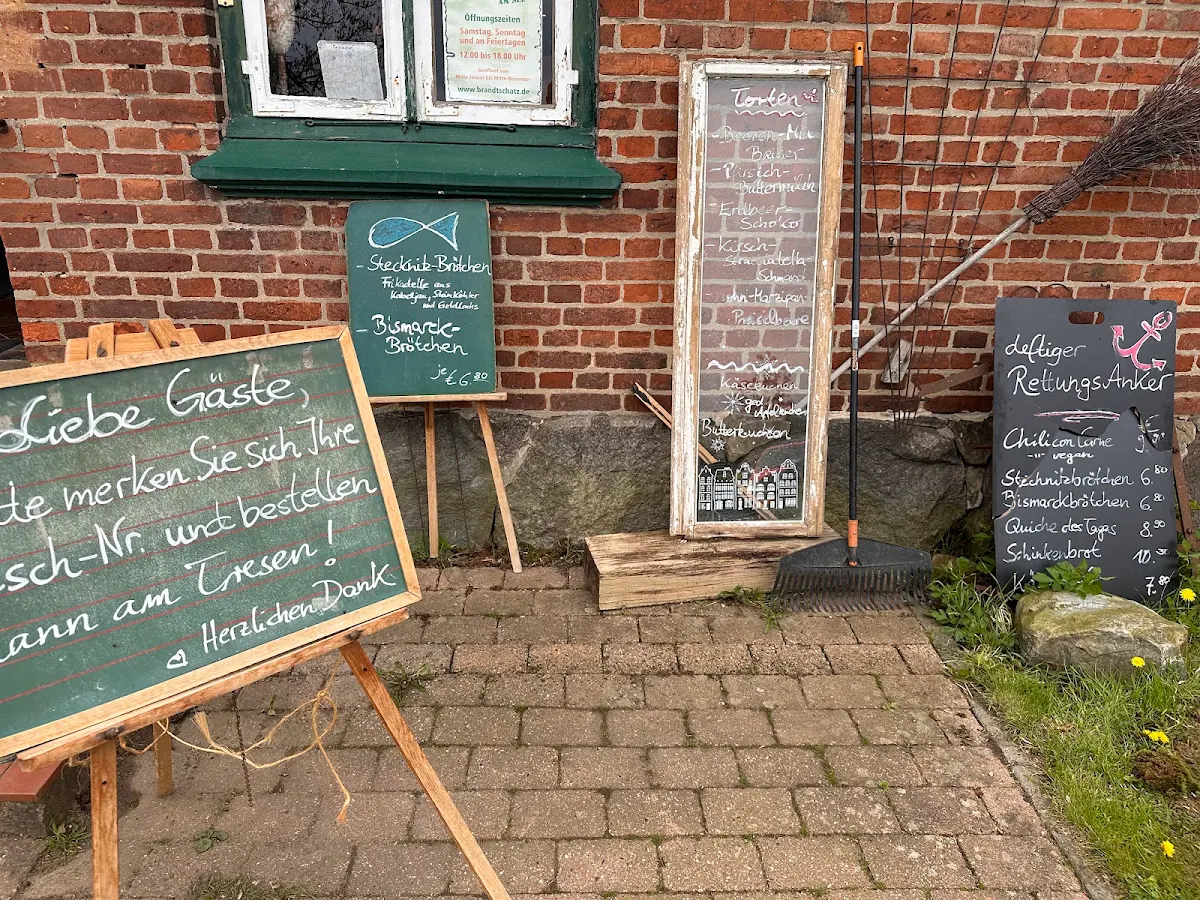 AM SEE
Öffnungszeiten
Samstag, Sonntag
und an Feiertagen
12.00 bis 18.00 Uhr
Geöffnet von
Mitte Januar bis Mitte Dezember
www.brandtschatz.de
Liebe Gäste,
merken Sie sich Ihre
sch-Nr. und bestellen
ann am Tresen!
Herzlichen Dank
- Stecknitz-Brötchen
Frikadelle aus
Kabeljau, Steinköhler
und Goldlachs
- Bismarck-
Brötchen
je € 6.80
Torten
- Beeren-
Baiser
- Pfirsich-
Buttermilch
- Erdbeer-
Schoko
- Kirsch-
Stracciatella
Schmand
- Mohn-Marzipan
Preiselbeere
Käsekuchen
ged. Apfelkuchen
Butterkuchen
deftiger
RettungsAnker
€
Chili con Carne
-"- vegan
Stecknitzbrötchen 6.80
Bismarckbrötchen 6.80
Quiche des Tages 8.90
Schinkenbrot 10.50
7.80